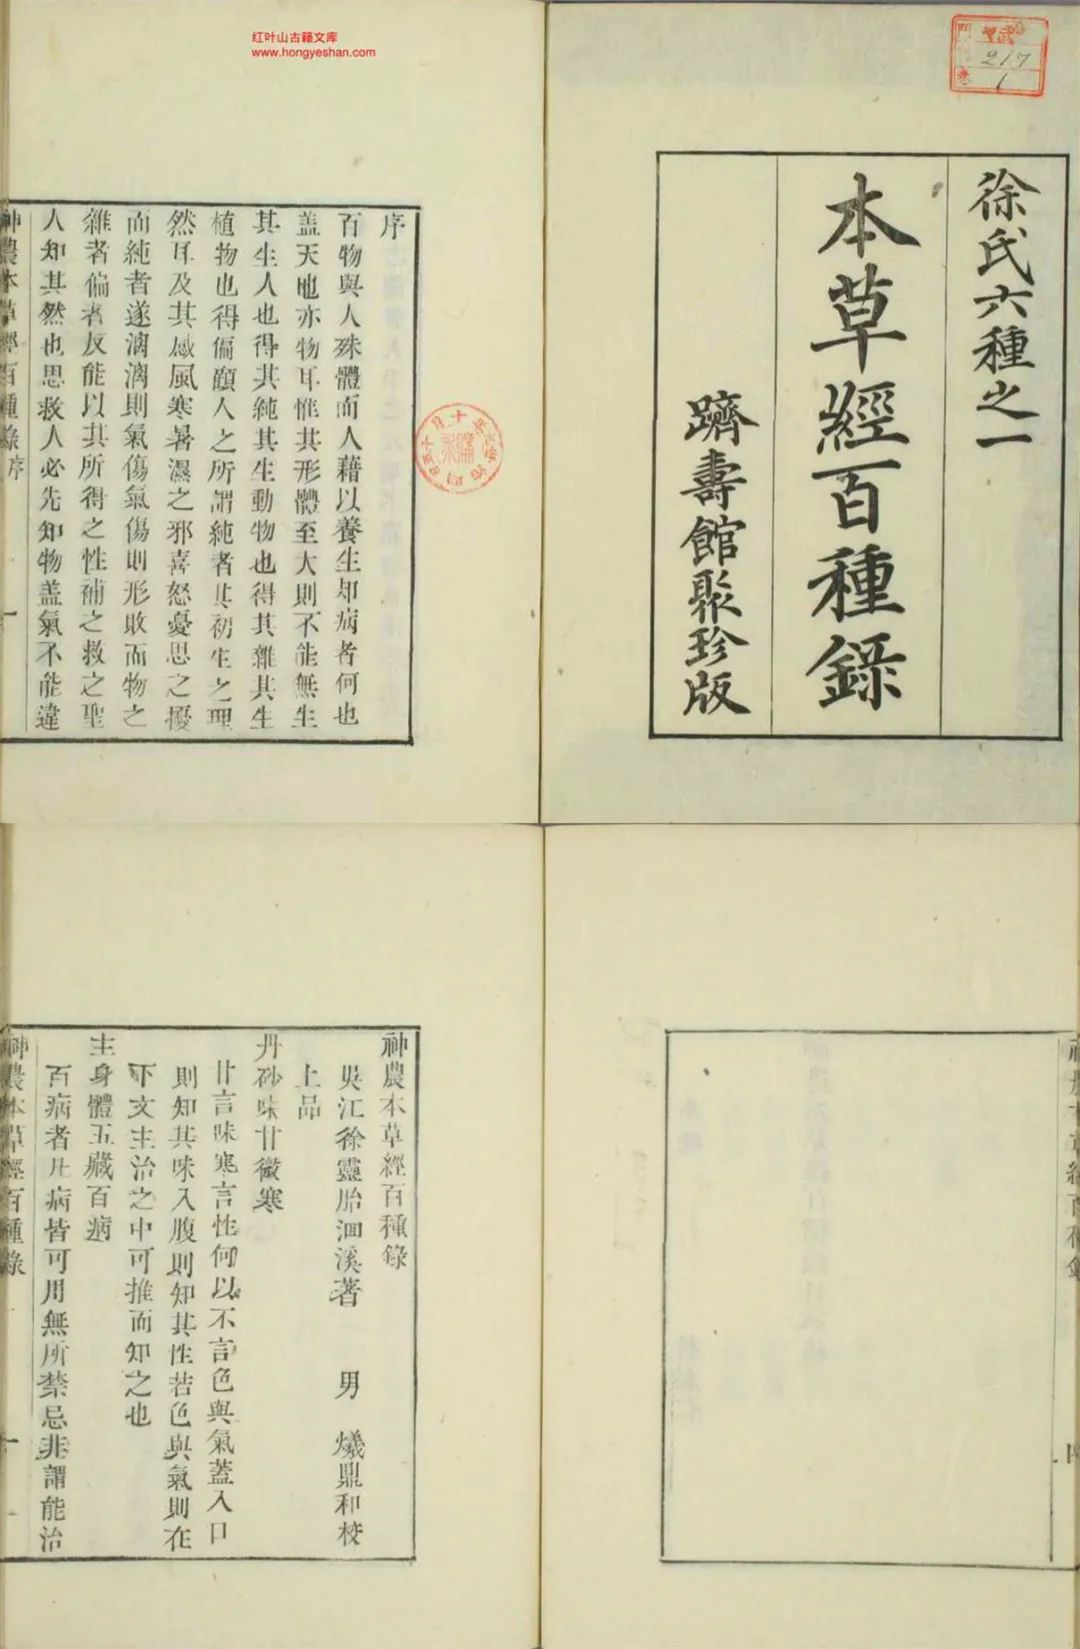 红叶山古籍文库
www.hongyeshan.com
217
1
徐氏六種之一
本草經百種錄
躋壽館聚珍版
序
百物與人殊體而人藉以養生却病者何也
蓋天地亦物耳惟其形體至大則不能無生
其生人也得其純其生動物也得其雜其生
植物也得偏顧人之所謂純者其初生之理
然耳及其感風寒暑濕之邪喜怒憂思之擾
而純者遂漓漓則氣傷氣傷則形敗而物之
雜者偏者反能以其所得之性補之救之聖
人知其然也思救人必先知物蓋氣不能違
神農本草經百種錄序 一
神農本草經百種錄
吳江徐靈胎洄溪著 男 爔鼎和校
上品
丹砂味甘微寒
甘言味寒言性何以不言色與氣蓋入口
則知其味入腹則知其性若色與氣則在
下文主治之中可推而知之也
主身體五藏百病
百病者凡病皆可用無所禁忌非謂能治
神農本草經百種錄 一